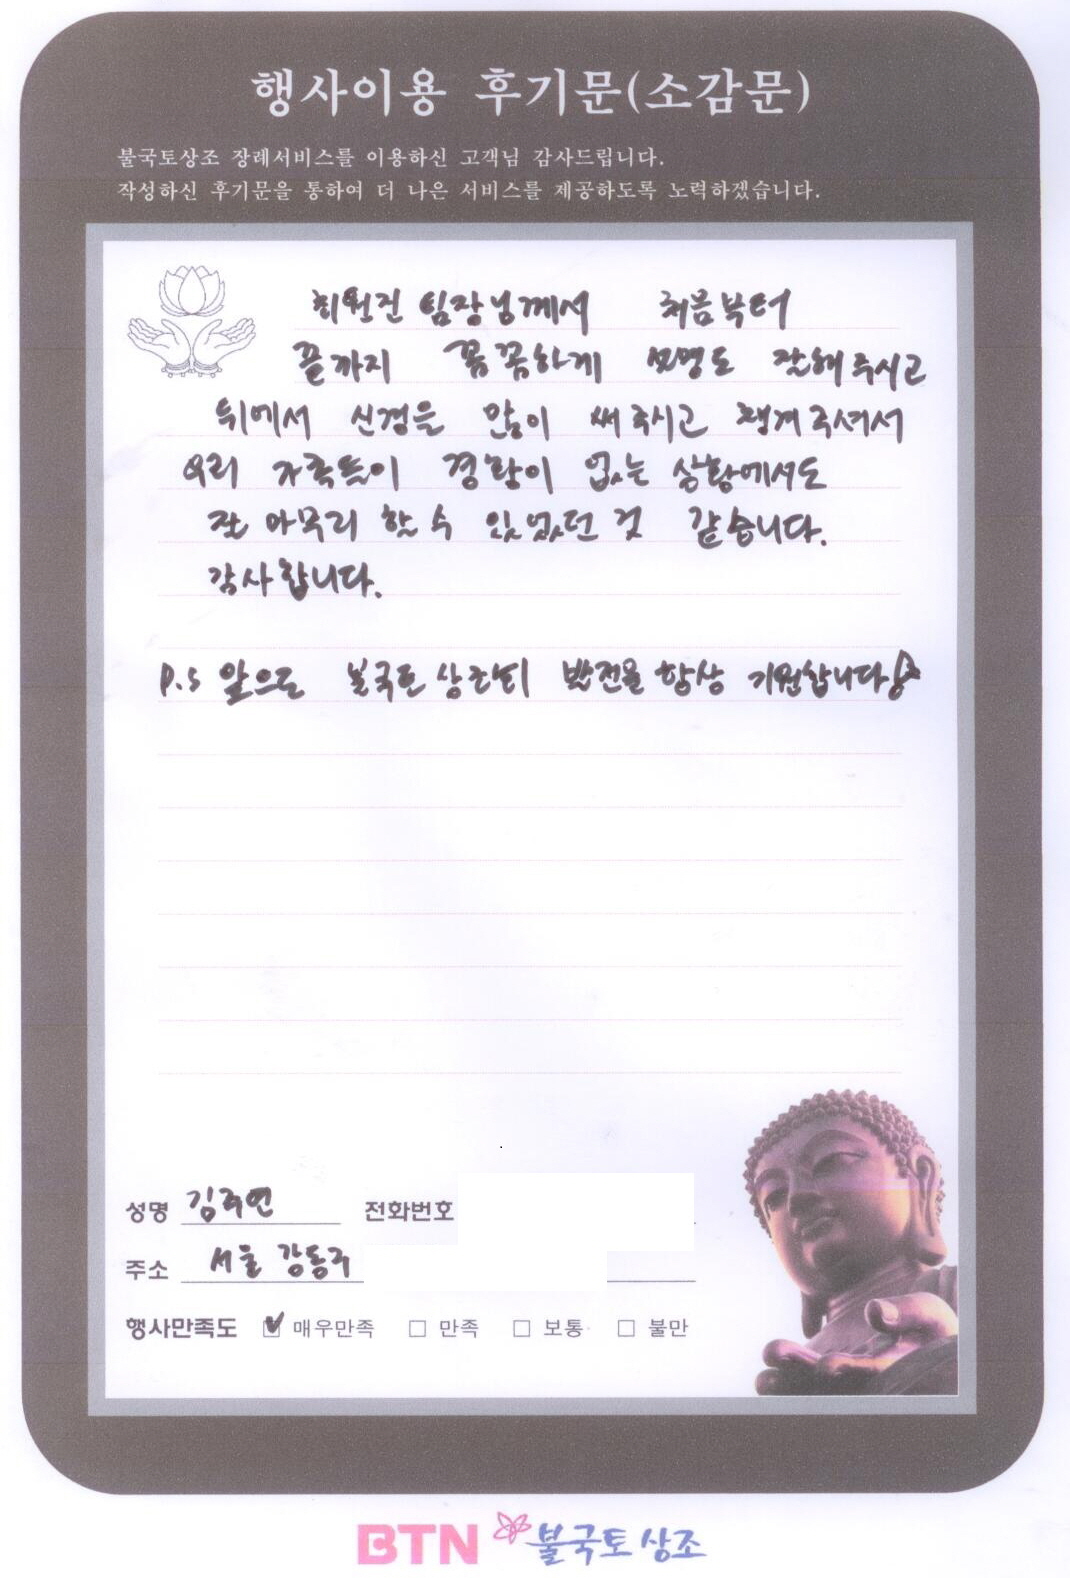 행사이용 후기문(소감문)
불국토상조 장례서비스를 이용하신 고객님 감사드립니다.
작성하신 후기문을 통하여 더 나은 서비스를 제공하도록 노력하겠습니다.
최원진 팀장님께서 처음부터
끝까지 꼼꼼하게 설명도 잘해주시고
뒤에서 신경을 많이 써주시고 챙겨주셔서
우리 가족들이 경황이 없는 상황에서도
잘 마무리 할 수 있었던 것 같습니다.
감사합니다.
P.S 앞으로 불국토 발전을 항상 기원합니다
성명 김주연 전화번호
주소 서울 강동구
행사만족도 매우만족 만족 보통 불만
BTN 불국토상조